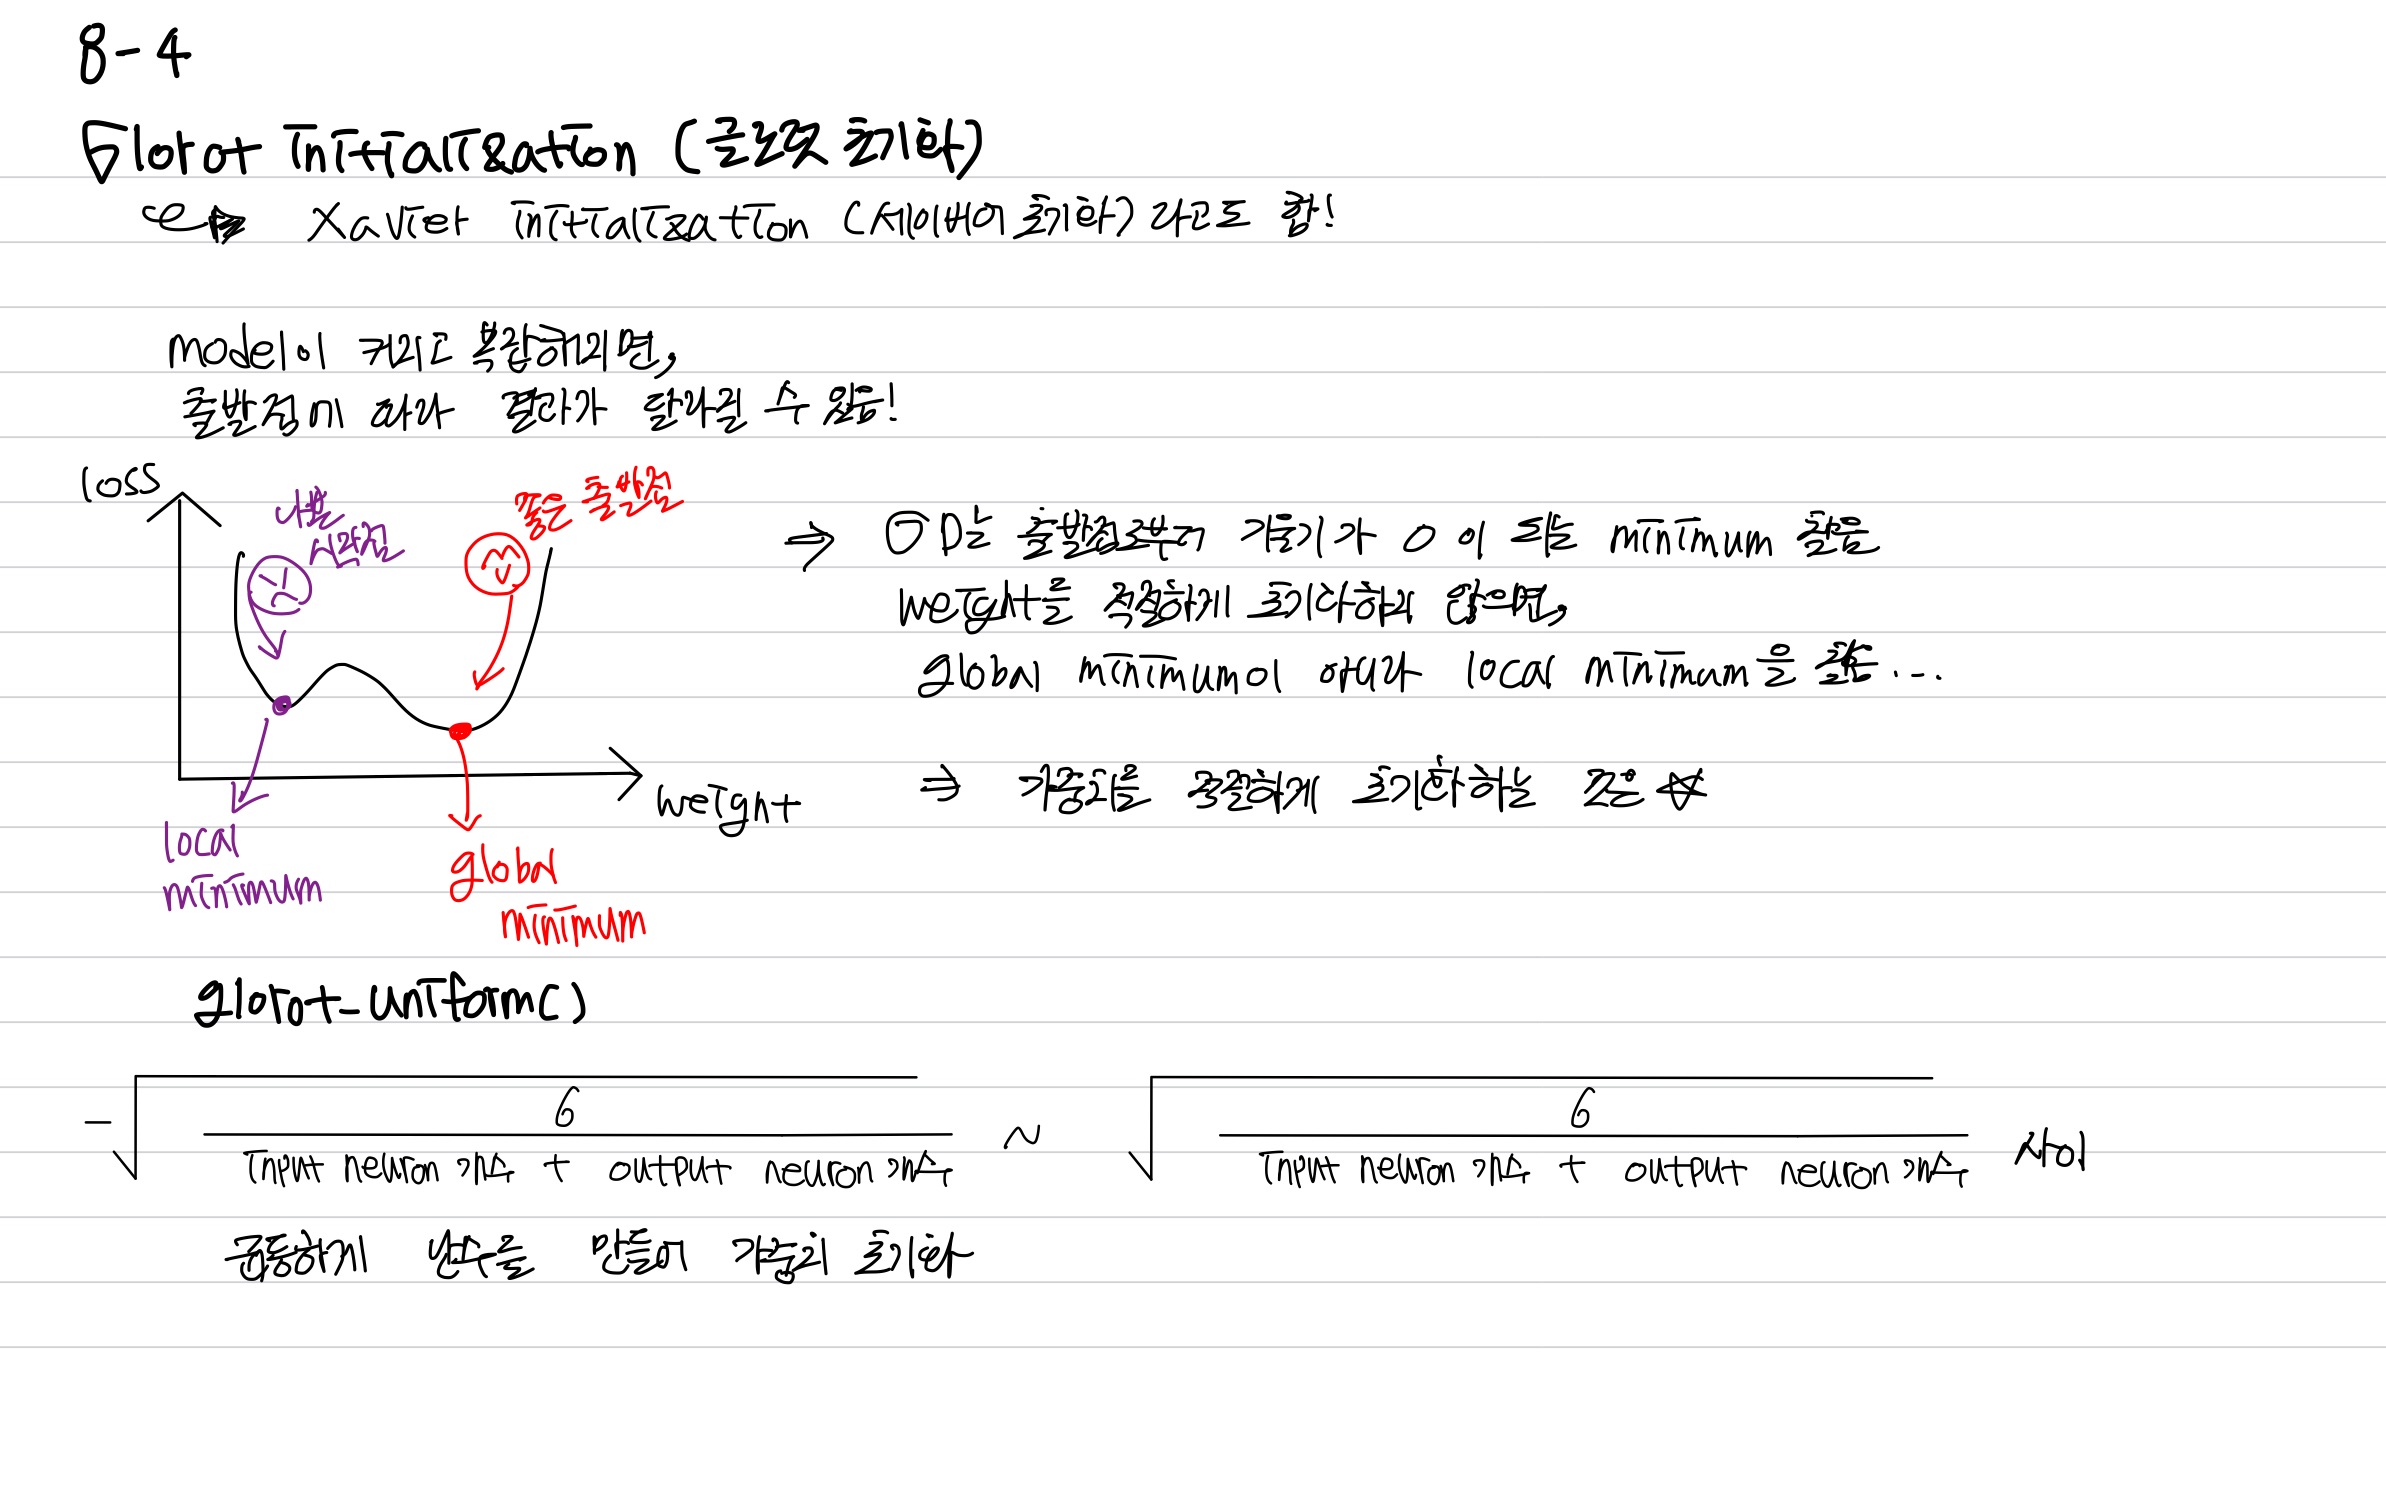 8-4
Glorot initialization (글로럿 초기화)
xavier initialization (세이비어 초기화) 라고도 함!
model이 커지고 복잡해지면,
출발점에 따라 결과가 달라질 수 있음!
loss
나쁜
시작점
좋은 출발점
⇒ GD는 출발점으로부터 기울기가 0 이 되는 minimum 찾음
weight를 적절하게 초기화하지 않으면,
global minimum이 아니라 local minimum을 찾음...
⇒ 가중치를 적절하게 초기화하는 것은 ☆
weight
local
minimum
global
minimum
glorot_uniform()
- √ 6 / input neuron 개수 + output neuron 개수 ~ √ 6 / input neuron 개수 + output neuron 개수 사이
균등하게 난수를 만들어 가중치 초기화